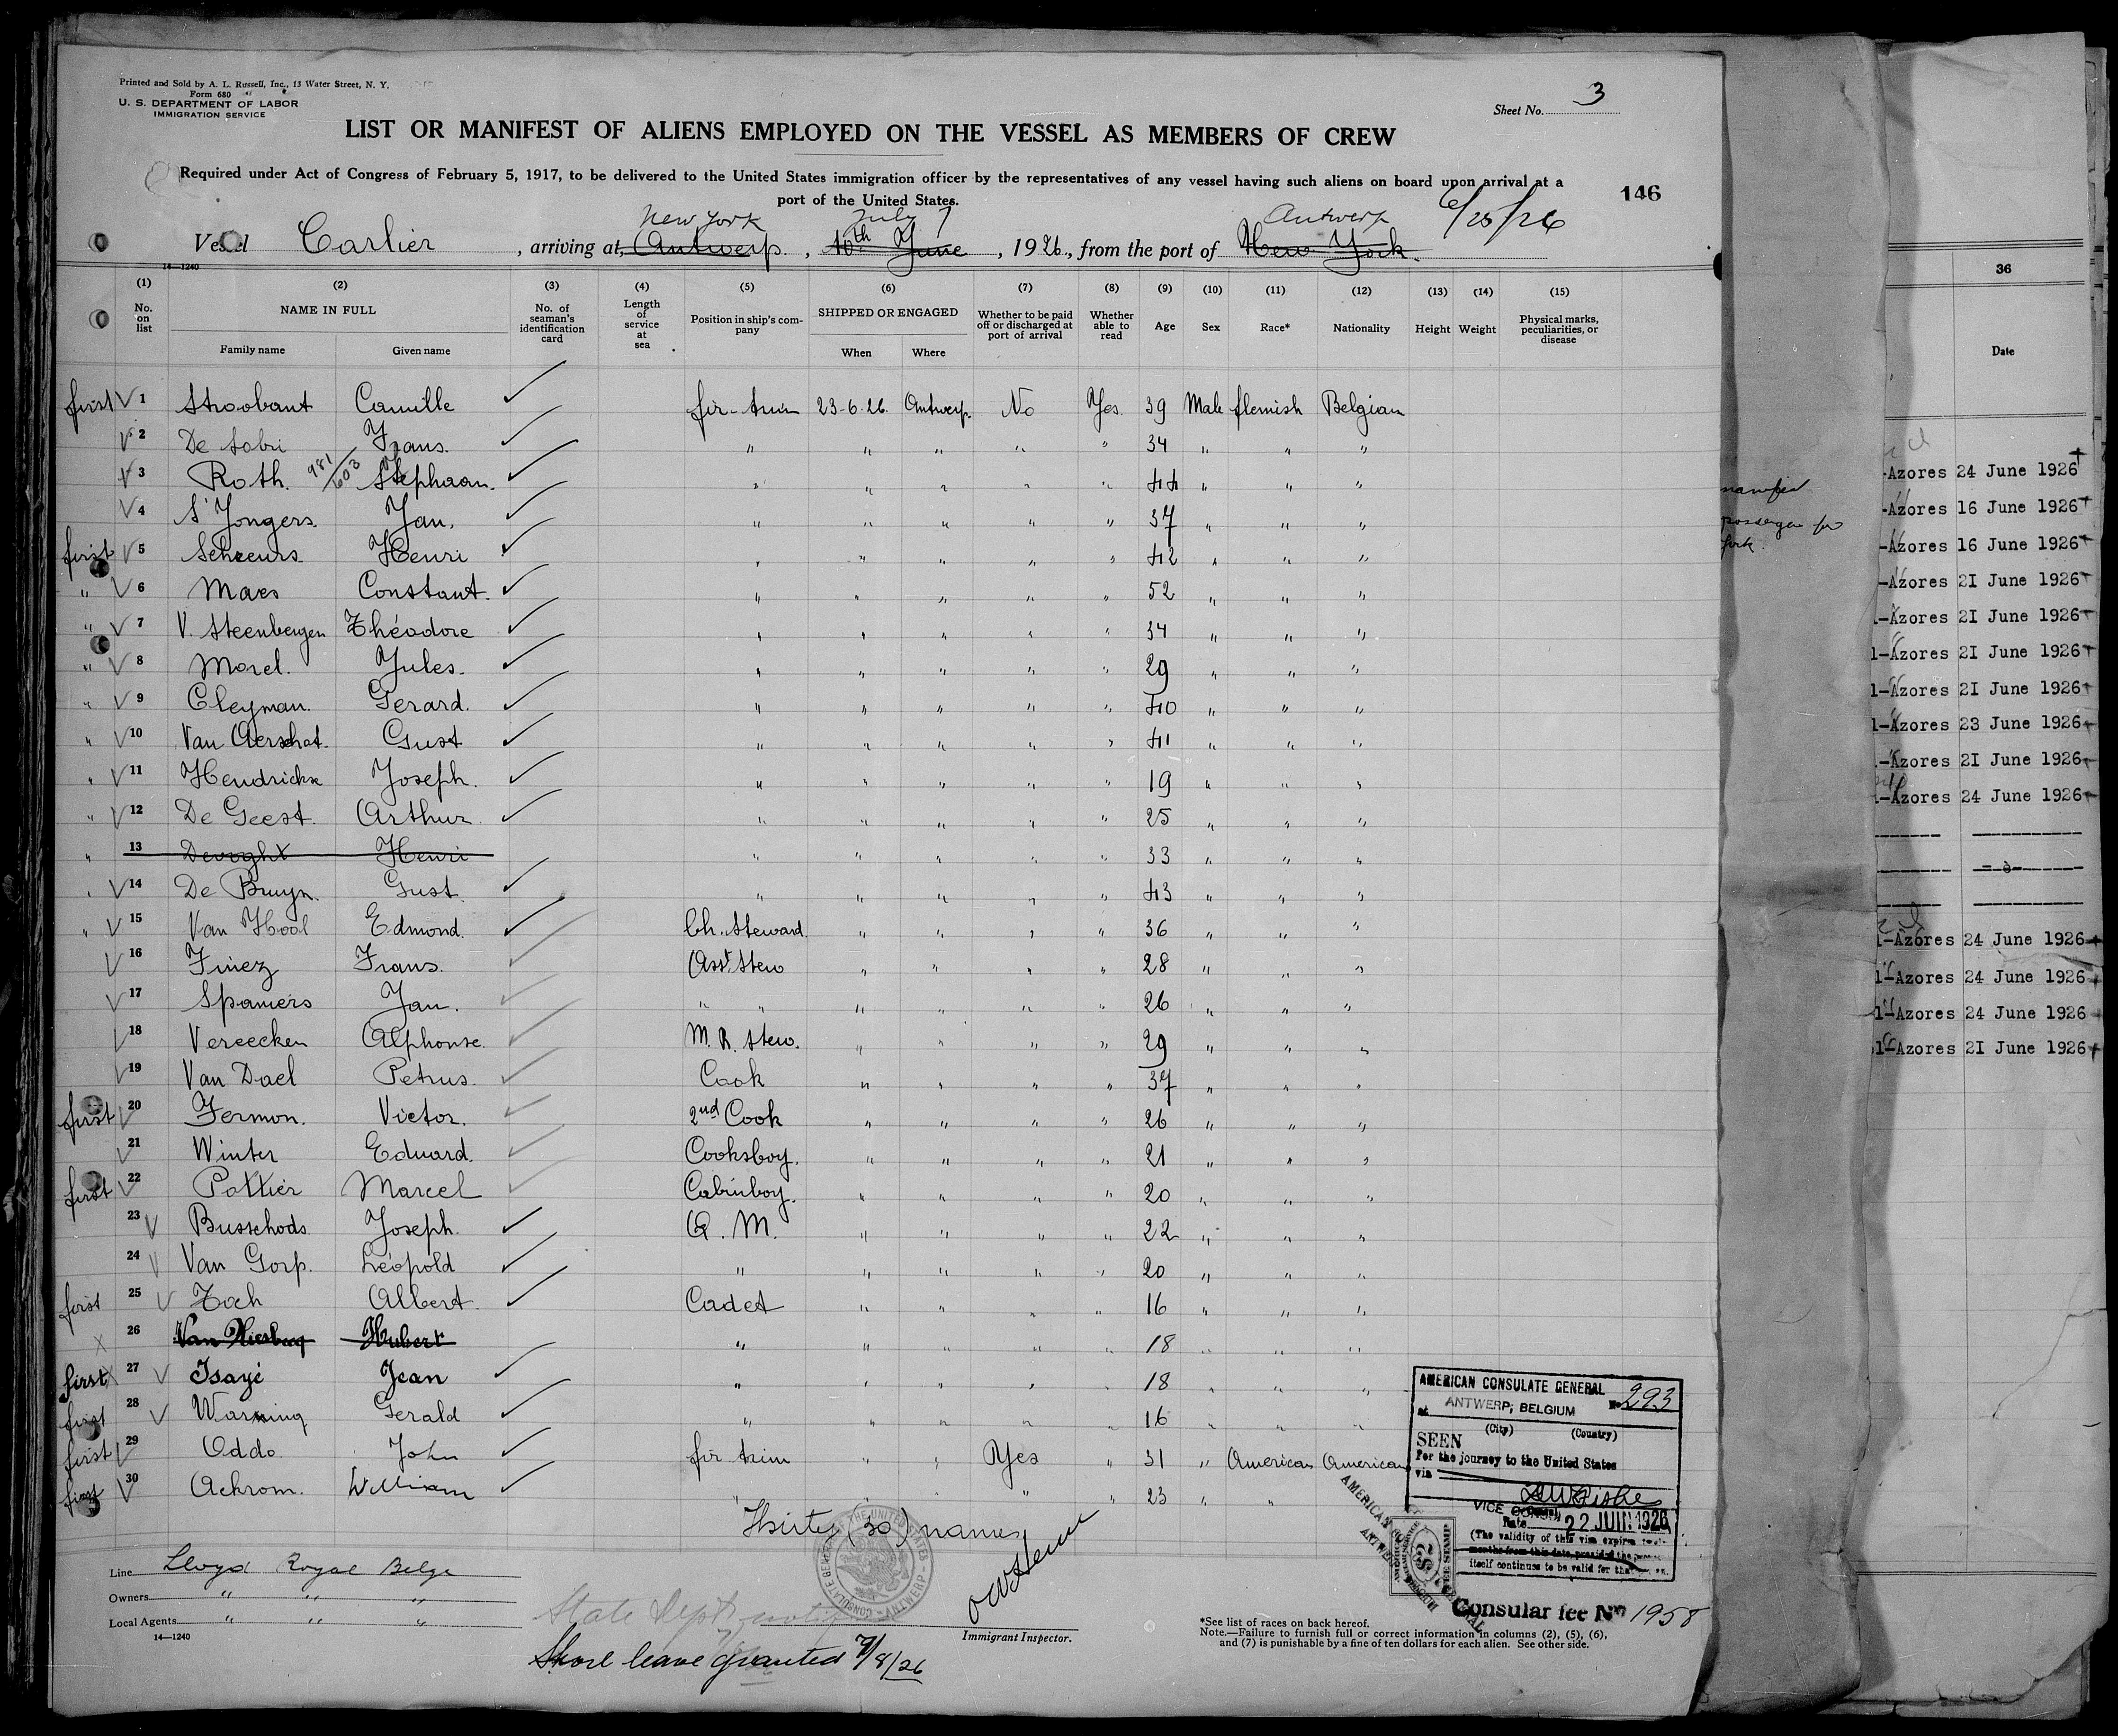 Printed and Sold by A. L. Russell, Inc., 13 Water Street, N. Y.
Form 680
U. S. DEPARTMENT OF LABOR
IMMIGRATION SERVICE
Sheet No. 3
LIST OR MANIFEST OF ALIENS EMPLOYED ON THE VESSEL AS MEMBERS OF CREW
Required under Act of Congress of February 5, 1917, to be delivered to the United States immigration officer by the representatives of any vessel having such aliens on board upon arrival at a
port of the United States.
146
New York July 7 Antwerp 6/25/26
Vessel Carlier, arriving at Antwerp, 10th June, 1926, from the port of New York.
14—1240
(1) (2) (3) (4) (5) (6) (7) (8) (9) (10) (11) (12) (13) (14) (15)
No. on list
NAME IN FULL
Family name Given name
No. of seaman's identification card
Length of service at sea
Position in ship's company
SHIPPED OR ENGAGED
When Where
Whether to be paid off or discharged at port of arrival
Whether able to read
Age Sex Race* Nationality Height Weight
Physical marks, peculiarities, or disease
first 1 Stroobant Camille fir-trim 23-6-26. Antwerp. No Yes. 39 Male flemish Belgian
2 De Frans. " " " " " 34 " " "
3 Roth. 981/603 Stephaan. " " " " " 44 " " "
4 S'Jongers. Jan. " " " " " 37 " " "
first 5 Scheurs. Henri " " " " " 42 " " "
" 6 Maes Constant. " " " " " 52 " " "
" 7 V. Steenbergen Théodore " " " " " 34 " " "
" 8 Morel. Jules. " " " " " 29 " " "
" 9 Cleyman. Gerard. " " " " " 40 " " "
" 10 Van Aerschot. Gust " " " " " 41 " " "
" 11 Hendrickx Joseph. " " " " " 19 " " "
" 12 De Geest. Arthur. " " " " " 25 " " "
" 13 Devoght Henri " " " " " 33 " " "
" 14 De Bruyn. Gust. " " " " " 43 " " "
" 15 Van Hool Edmond. Ch. Steward. " " " " 36 " " "
16 Finez Frans. Asst. Stew " " " " 28 " " "
17 Spaniers Jan. " " " " " " 26 " " "
18 Vereecken Alphonse. M. R. Stew. " " " " 29 " " "
19 Van Dael Petrus. Cook " " " " 37 " " "
first 20 Fermon. Victor. 2nd Cook " " " " 26 " " "
21 Winter Eduard. Cooksboy. " " " " 21 " " "
first 22 Pottier Marcel Cabinboy. " " " " 20 " " "
23 Busschods Joseph. Q. M. " " " " 22 " " "
24 Van Gorp. Léopold " " " " " 20 " " "
first 25 Zoch Albert. Cadet " " " " 16 " " "
26 Hubert " " " " " 18 " " "
first 27 Isayé Jean " " " " " 18 " " "
first 28 Warning Gerald " " " " " 16 " " "
first 29 Oddo. John fir trim " " Yes " 31 " American American
first 30 Achrom. William " " " " " 23 " "
Thirty (30) names
AMERICAN CONSULATE GENERAL
No 293
at ANTWERP, BELGIUM
(City) (Country)
SEEN
For the journey to the United States
via
VICE CONSUL
Date 22 JUIN 1926
(The validity of this visa expires
months from this date, provided the
itself continues to be valid for that
Consular fee No 1958
AMERICAN CONSULATE
FEE STAMP
Line Lloyd Royal Belge
Owners " " "
Local Agents " " "
14—1240
State Dept.
Shore leave granted 7/8/26
Immigrant Inspector.
*See list of races on back hereof.
Note.—Failure to furnish full or correct information in columns (2), (5), (6),
and (7) is punishable by a fine of ten dollars for each alien. See other side.
manifest
passenger for
York.
36
Date
-Azores 24 June 1926
-Azores 16 June 1926
-Azores 16 June 1926
-Azores 21 June 1926
-Azores 21 June 1926
1-Azores 21 June 1926
1-Azores 21 June 1926
1-Azores 23 June 1926
-Azores 21 June 1926
-Azores 24 June 1926
1-Azores 24 June 1926
1-Azores 24 June 1926
1-Azores 24 June 1926
1-Azores 21 June 1926